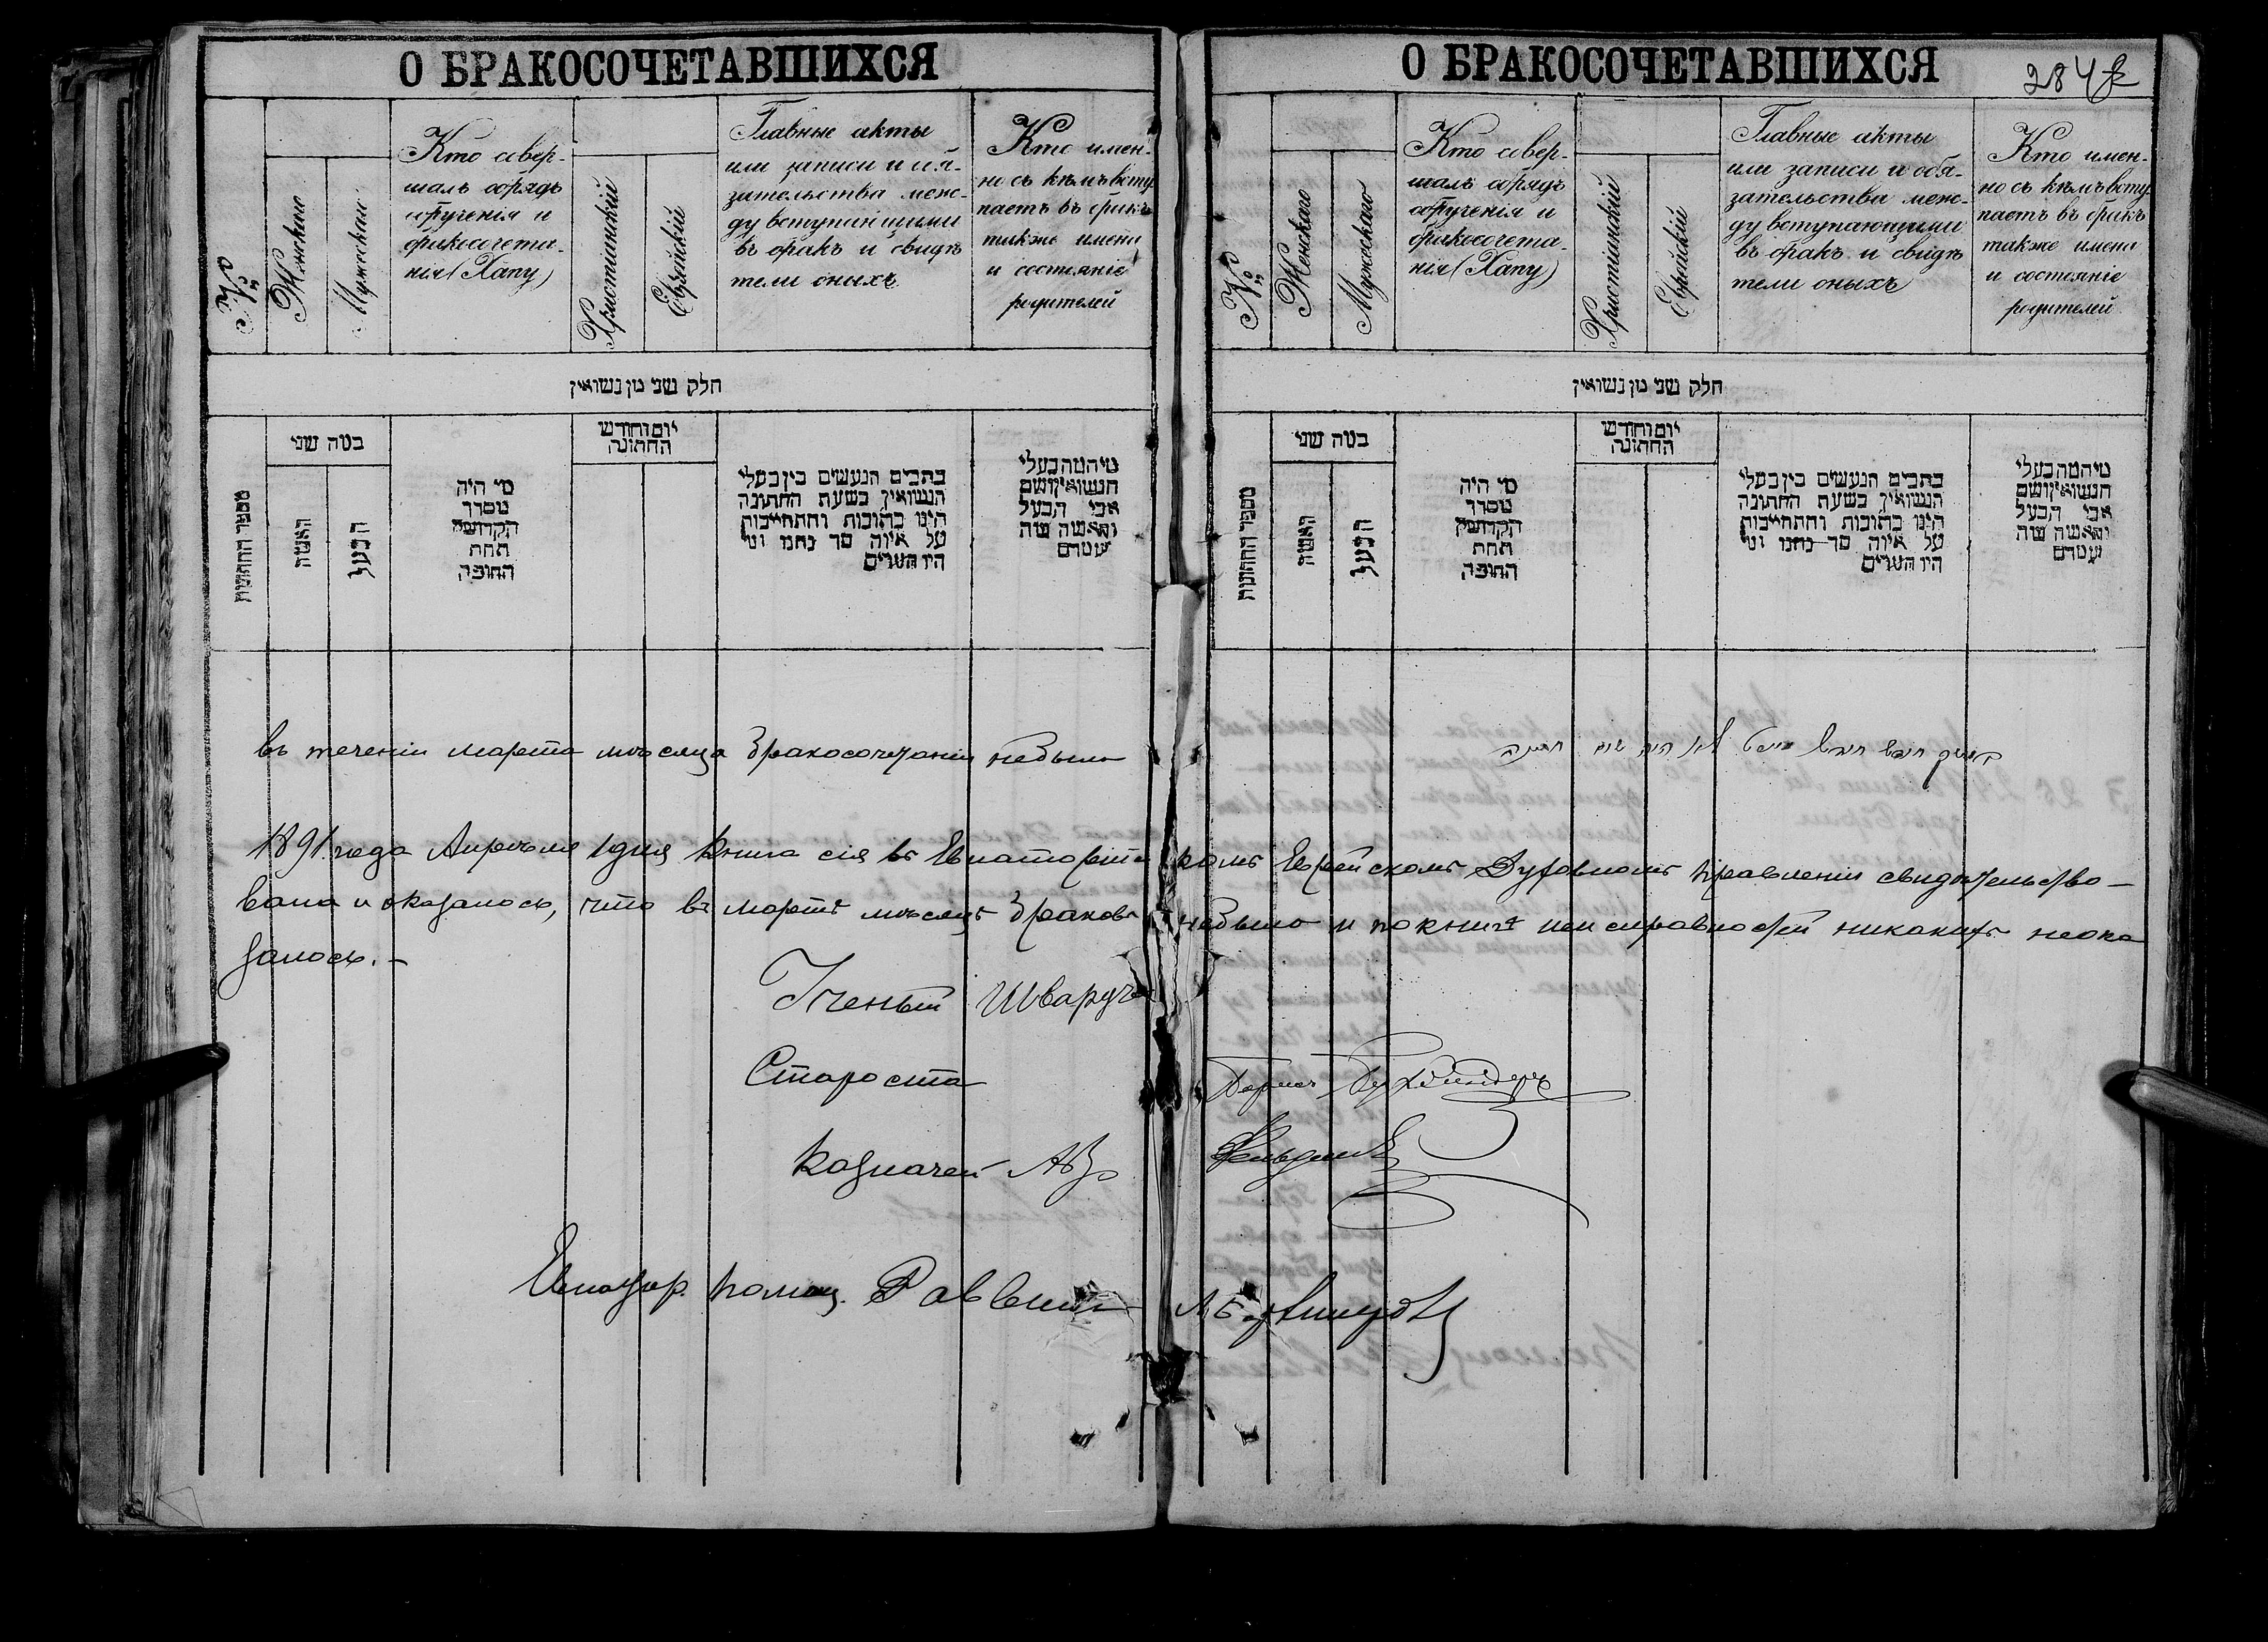 О БРАКОСОЧЕТАВШИХСЯ
№
Женскаго
Мужескаго
Кто совер-
шалъ обрядъ
обрученія и
бракосочета-
нія (Хапу)
Христіанскій
Еврейскій
Главные акты
или записи и обя-
зательства меж-
ду вступающими
въ бракъ и свидѣ
тели оныхъ
Кто имен-
но съ кѣмъ всту
паетъ въ бракъ
также имена
и состояніе
родителей
חלק שני מן נשואין
מספר החתונות
כמה שני
האשה
הבעל
מי היה
מסדר
הקדושין
תחת
החופה
יום וחודש
החתונה
כתבים הנעשים בין בעלי
הנשואין בשעת החתונה
היינו כתובות והתחייבות
על איזה סך נתנו ומי
היו העדים
מי המה בעלי
הנשואין ושם
אבי הבעל
והאשה ומה
שטרם
въ теченіи марта мѣсяца бракосочетаній небыло
1891 года Апрѣля 1 дня книга сія въ Евпаторійс
вана и оказалось, что въ мартѣ мѣсяцѣ браковъ
залось.-
Ученый Шварцъ
Староста
Казначей
Евпатор. помощ. Раввина
О БРАКОСОЧЕТАВШИХСЯ
284
№
Женскаго
Мужескаго
Кто совер-
шалъ обрядъ
обрученія и
бракосочета-
нія (Хапу)
Христіанскій
Еврейскій
Главные акты
или записи и обя-
зательства меж-
ду вступающими
въ бракъ и свидѣ
тели оныхъ
Кто имен-
но съ кѣмъ всту
паетъ въ бракъ
также имена
и состояніе
родителей
חלק שני מן נשואין
מספר החתונות
כמה שני
האשה
הבעל
מי היה
מסדר
הקדושין
תחת
החופה
יום וחודש
החתונה
כתבים הנעשים בין בעלי
הנשואין בשעת החתונה
היינו כתובות והתחייבות
על איזה סך נתנו ומי
היו העדים
מי המה בעלי
הנשואין ושם
אבי הבעל
והאשה ומה
שטרם
חודש מארט לא היה שום חתונה
комъ Еврейскомъ Духовномъ правленіи свидѣтельство-
небыло и по книгѣ неисправностей никакихъ неока